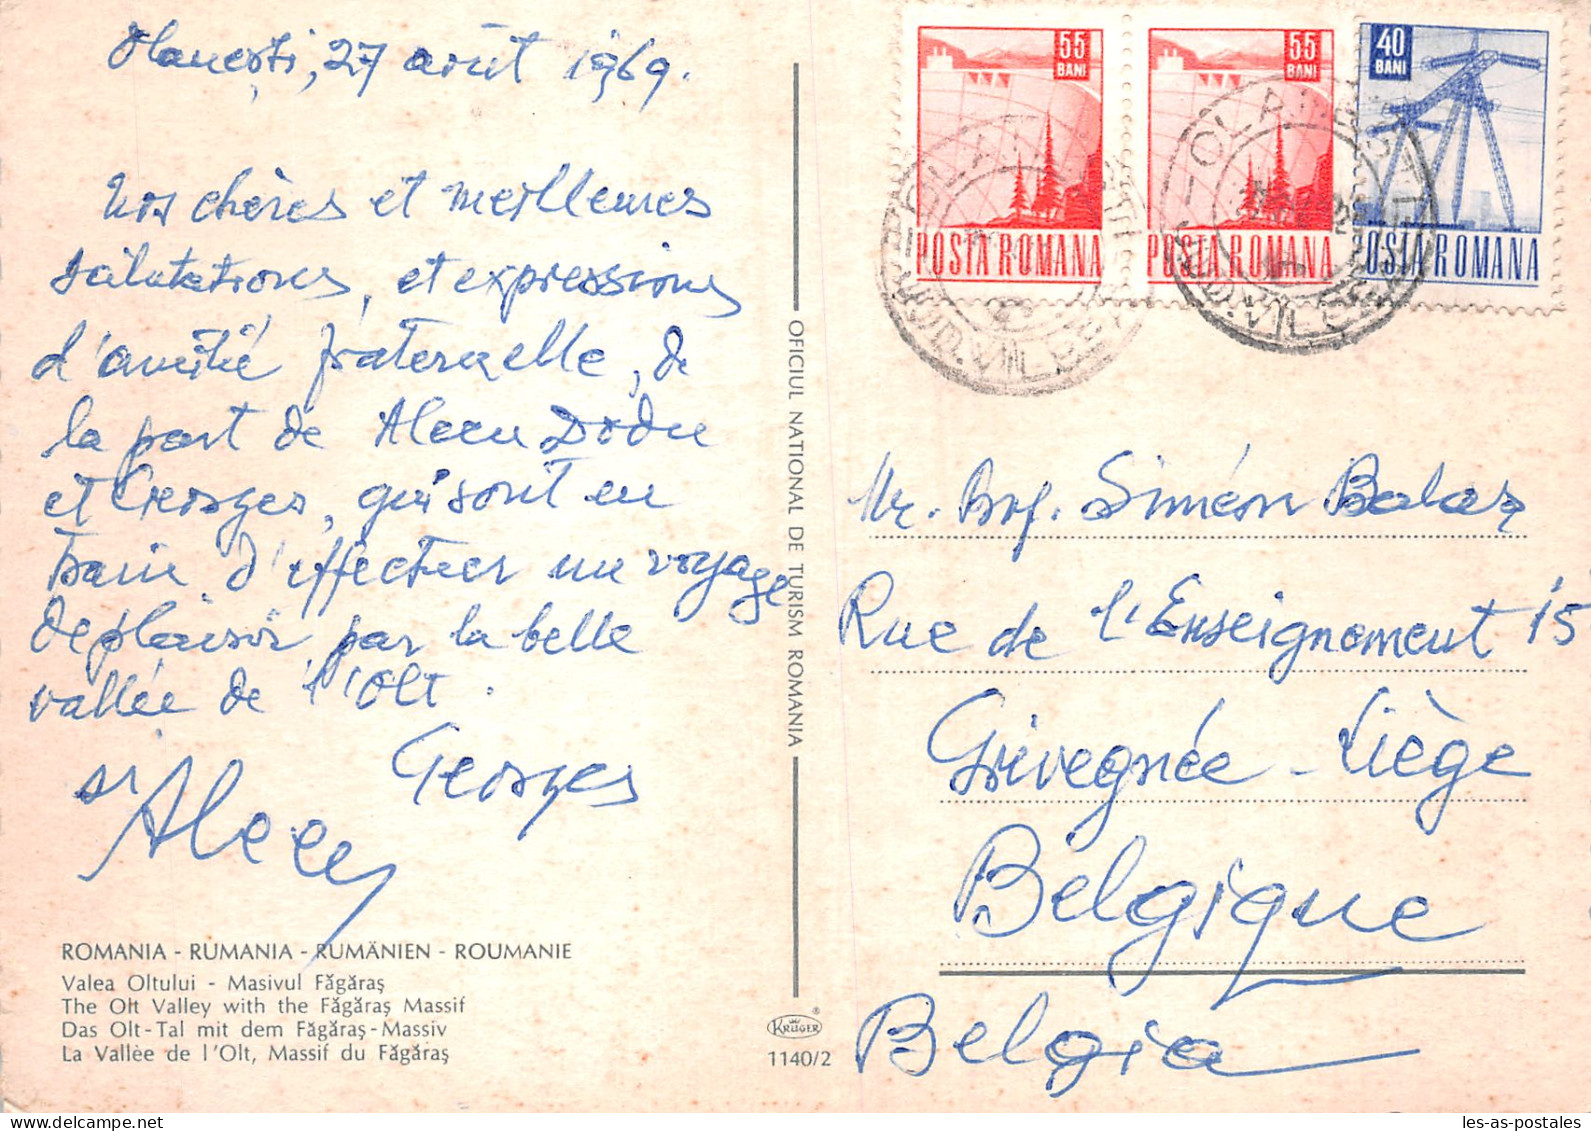 Olanești, 27 août 1969.
Nos chères et meilleures
salutations, et expressions
d'amitié fraternelle, de
la part de Alecu Dodu
et Georges, qui sont en
train d'effectuer un voyage
de plaisir par la belle
vallée de l'Olt.
Georges
și Alecu
ROMANIA - RUMANIA - RUMÄNIEN - ROUMANIE
Valea Oltului - Masivul Făgăraș
The Olt Valley with the Făgăraș Massif
Das Olt-Tal mit dem Făgăraș-Massiv
La Vallèe de l'Olt, Massif du Făgăraș
OFICIUL NATIONAL DE TURISM ROMANIA
KRÜGER
1140/2
55 BANI
POSTA ROMANA
55 BANI
POSTA ROMANA
40 BANI
POSTA ROMANA
JUD. VILCEA
Mr. Prof. Siméon Balas
Rue de l'Enseignement 15
Grivegnée - Liège
Belgique
Belgia
les-as-postales